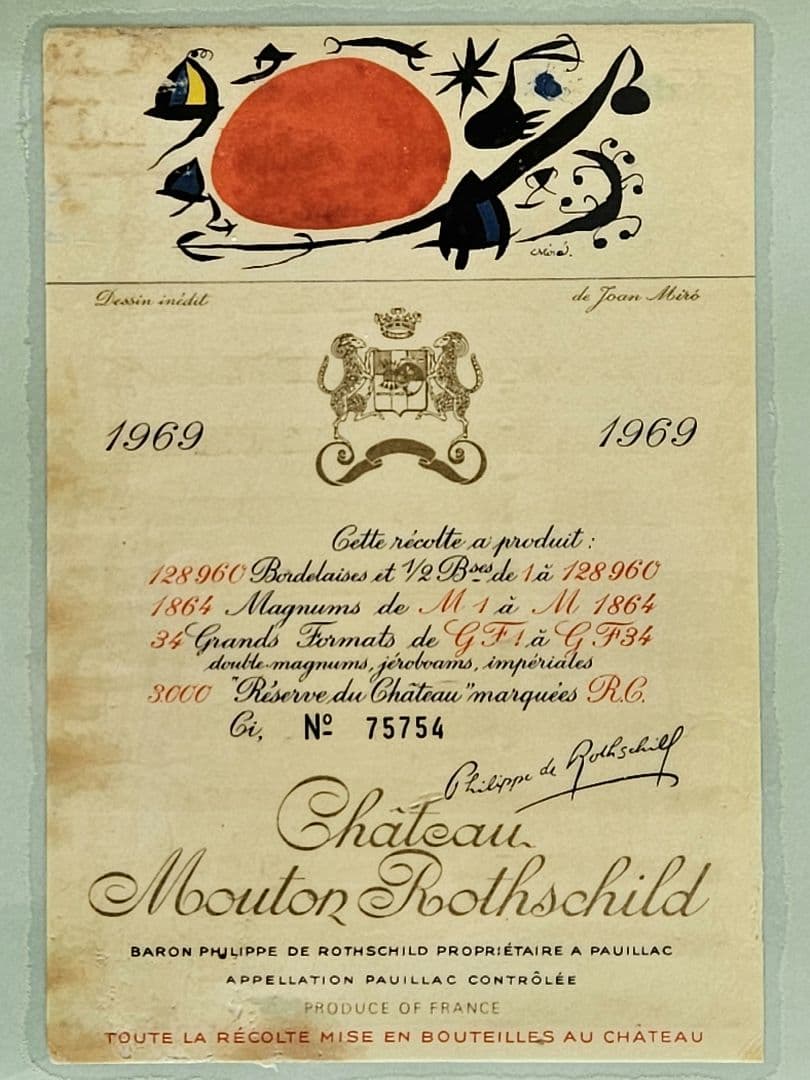 Miró.
Dessin inédit de Joan Miró
1969 1969
Cette récolte a produit :
128960 Bordelaises et 1/2 Bses de 1 à 128960
1864 Magnums de M 1 à M 1864
34 Grands Formats de G F 1 à G F 34
double-magnums, jéroboams, impériales
3.000 "Réserve du Château" marquées R.C.
Ci, Nº 75754
Philippe de Rothschild
Château
Mouton Rothschild
BARON PHILIPPE DE ROTHSCHILD PROPRIÉTAIRE A PAUILLAC
APPELLATION PAUILLAC CONTRÔLÉE
PRODUCE OF FRANCE
TOUTE LA RÉCOLTE MISE EN BOUTEILLES AU CHÂTEAU